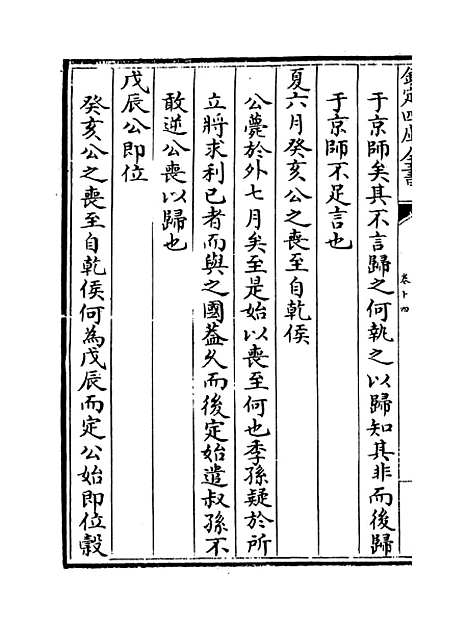 欽定四庫全書
卷十四
于京師矣其不言歸之何執之以歸知其非而後歸
于京師不足言也
夏六月癸亥公之喪至自乾侯
公薨於外七月矣至是始以喪至何也季孫疑於所
立將求利已者而與之國葢久而後定始遣叔孫不
敢逆公喪以歸也
戊辰公即位
癸亥公之喪至自乾侯何為戊辰而定公始即位穀